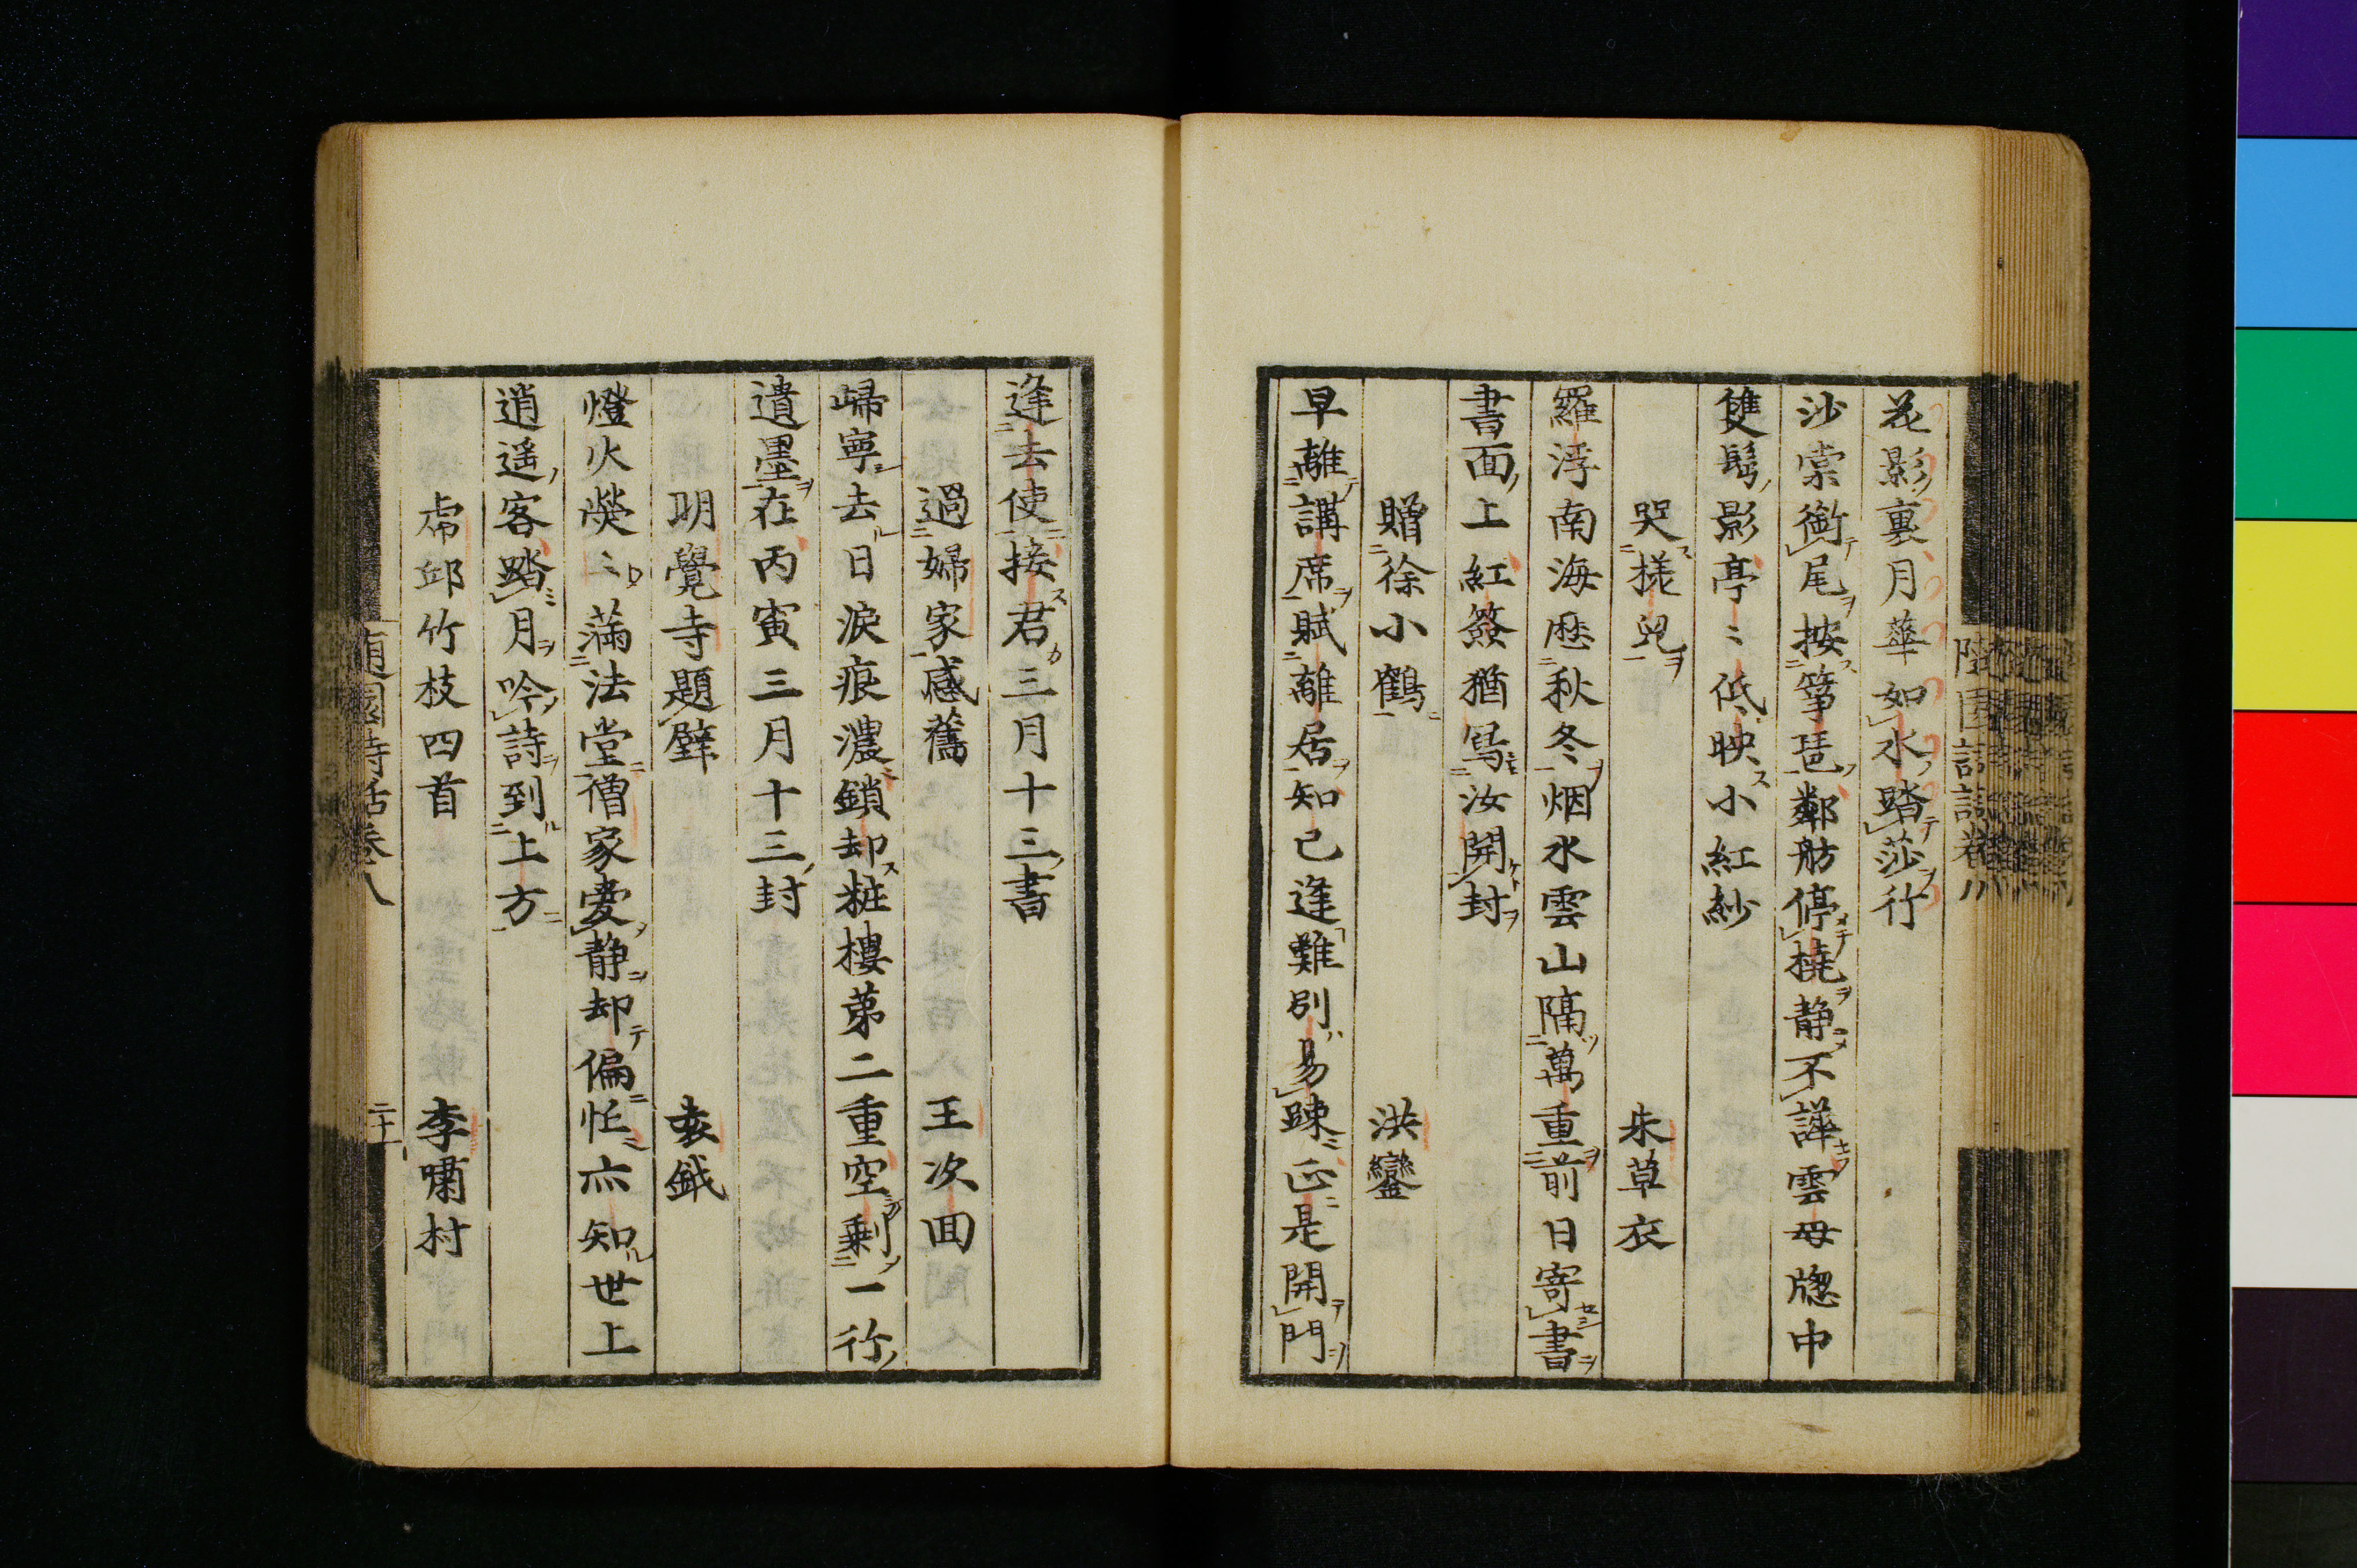 花影裏月華如水踏莎行
沙棠銜尾按箏琶鄰舫停橈静不譁雲母牕中
雙鬟影亭〻低映小紅紗
哭槎兒　朱草衣
羅浮南海歴秋冬烟水雲山隔萬重前日寄書
書面上紅簽猶寫汝開封
贈徐小鶴　洪鑾
早離講席賦離居知己逢難別易踈正是開門
逢去使接君三月十三書
過婦家感舊　王次回
歸寧去日淚痕濃鎖却粧樓第二重空剩一行
遺墨在丙寅三月十三封
明覺寺題壁　袁鉞
燈火熒〻滿法堂僧家愛静却偏忙亦知世上
逍遥客踏月吟詩到上方
虎邱竹枝四首　李嘯村
隨園詩話卷八
二十一